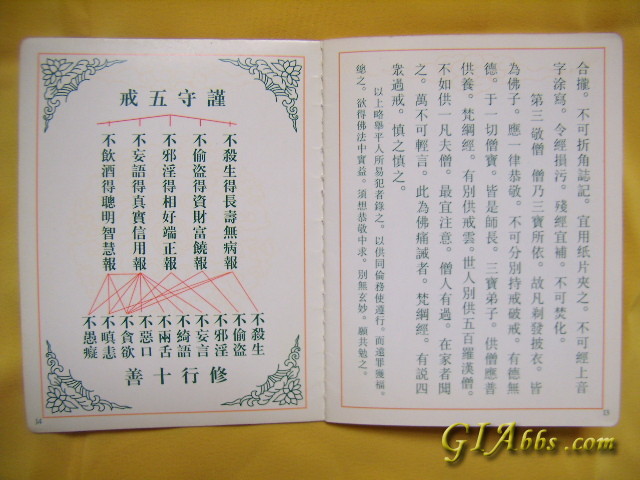 合攏。不可折角誌記。宜用纸片夾之。不可經上音
字涂寫。令經損污。殘經宜補。不可焚化。
第三敬僧　僧乃三寶所依。故凡剃發披衣。皆
為佛子。應一律恭敬。不可分別持戒破戒。有德無
德。于一切僧寶。皆是師長。三寶弟子。供僧應普
供養。梵綱經。有別供戒雲。世人別供五百羅漢僧。
不如供一凡夫僧。最宜注意。僧人有過。在家者聞
之。萬不可輕言。此為佛痛誡者。梵綱經。有説四
衆過戒。慎之慎之。
以上略舉平人所易犯者錄之。以供同倫務使遵行。而遠罪幾福。
總之。欲得佛法中實益。須想恭敬中求。別無玄妙。願共勉之。
15
謹守五戒
不殺生得長壽無病報
不偷盜得資財富饒報
不邪淫得相好端正報
不妄語得真實信用報
不飲酒得聰明智慧報
不殺生
不偷盜
不邪淫
不妄言
不綺語
不兩舌
不惡口
不貪欲
不嗔恚
不愚癡
修行十善
14
GIAbbs.com